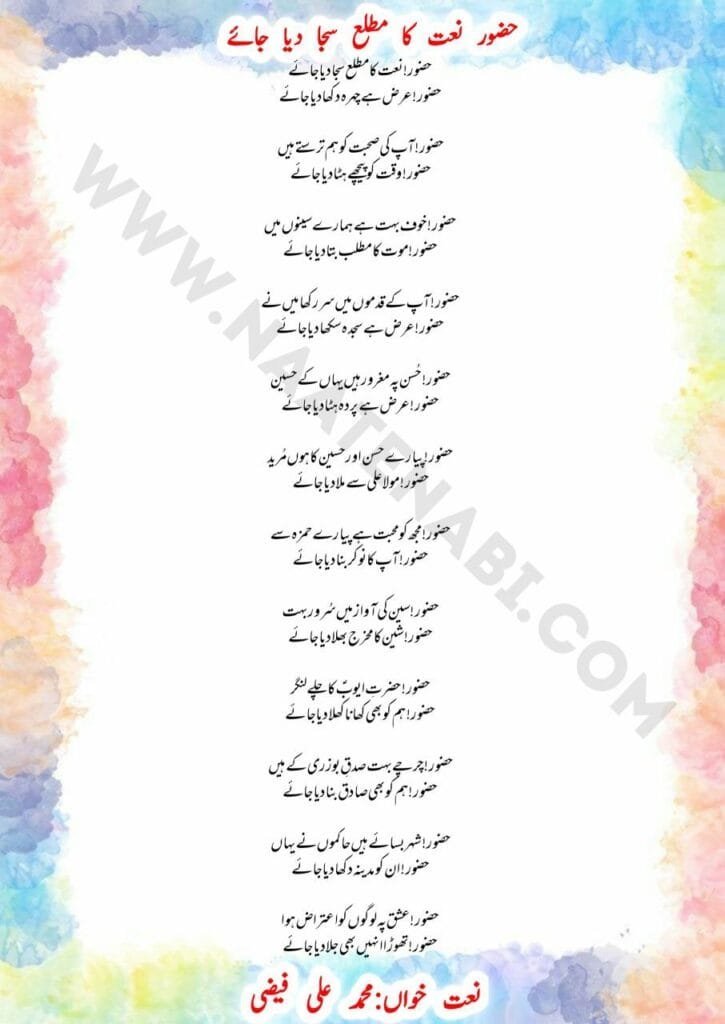 حضور نعت کا مطلع سجا دیا جائے
حضور! نعت کا مطلع سجا دیا جائے
حضور! عرض ہے چہرہ دکھا دیا جائے
حضور! آپ کی صحبت کو ہم ترستے ہیں
حضور! وقت کو پیچھے ہٹا دیا جائے
حضور! خوف بہت ہے ہمارے سینوں میں
حضور! موت کا مطلب بتا دیا جائے
حضور! آپ کے قدموں میں سر رکھا میں نے
حضور! عرض ہے سجدہ سکھا دیا جائے
حضور! حُسن پہ مغرور ہیں یہاں کے حسین
حضور! عرض ہے پردہ ہٹا دیا جائے
حضور! پیارے حسن اور حسین کا ہوں مُرید
حضور! مولا علی سے ملا دیا جائے
حضور! مجھ کو محبت ہے پیارے حمزہ سے
حضور! آپ کا نوکر بنا دیا جائے
حضور! سین کی آواز میں سُرور بہت
حضور! شین کا مخرج بھلا دیا جائے
حضور! حضرت ایوبؓ کا چلے لنگر
حضور! ہم کو بھی کھانا کھلا دیا جائے
حضور! چرچے بہت صدقِ بوزری کے ہیں
حضور! ہم کو بھی صادق بنا دیا جائے
حضور! شہر بسائے ہیں حاکموں نے یہاں
حضور! ان کو مدینہ دکھا دیا جائے
حضور! عشق پہ لوگوں کو اعتراض ہوا
حضور! تھوڑا انہیں بھی جلا دیا جائے
نعت خواں: محمد علی فیضی
WWW.NAATENABI.COM